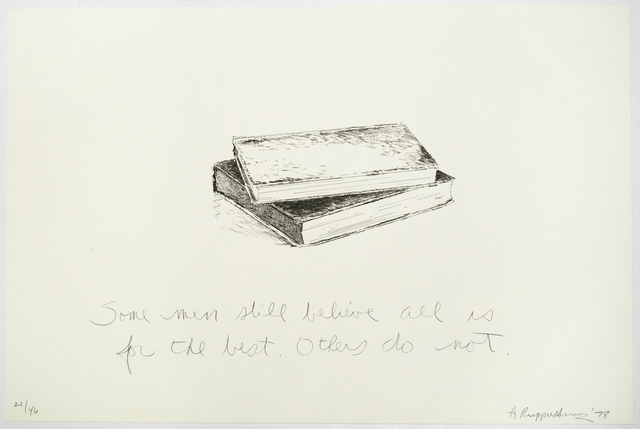 Some men still believe all is
for the best. Others do not.
21/46
A Ruppersberg '78